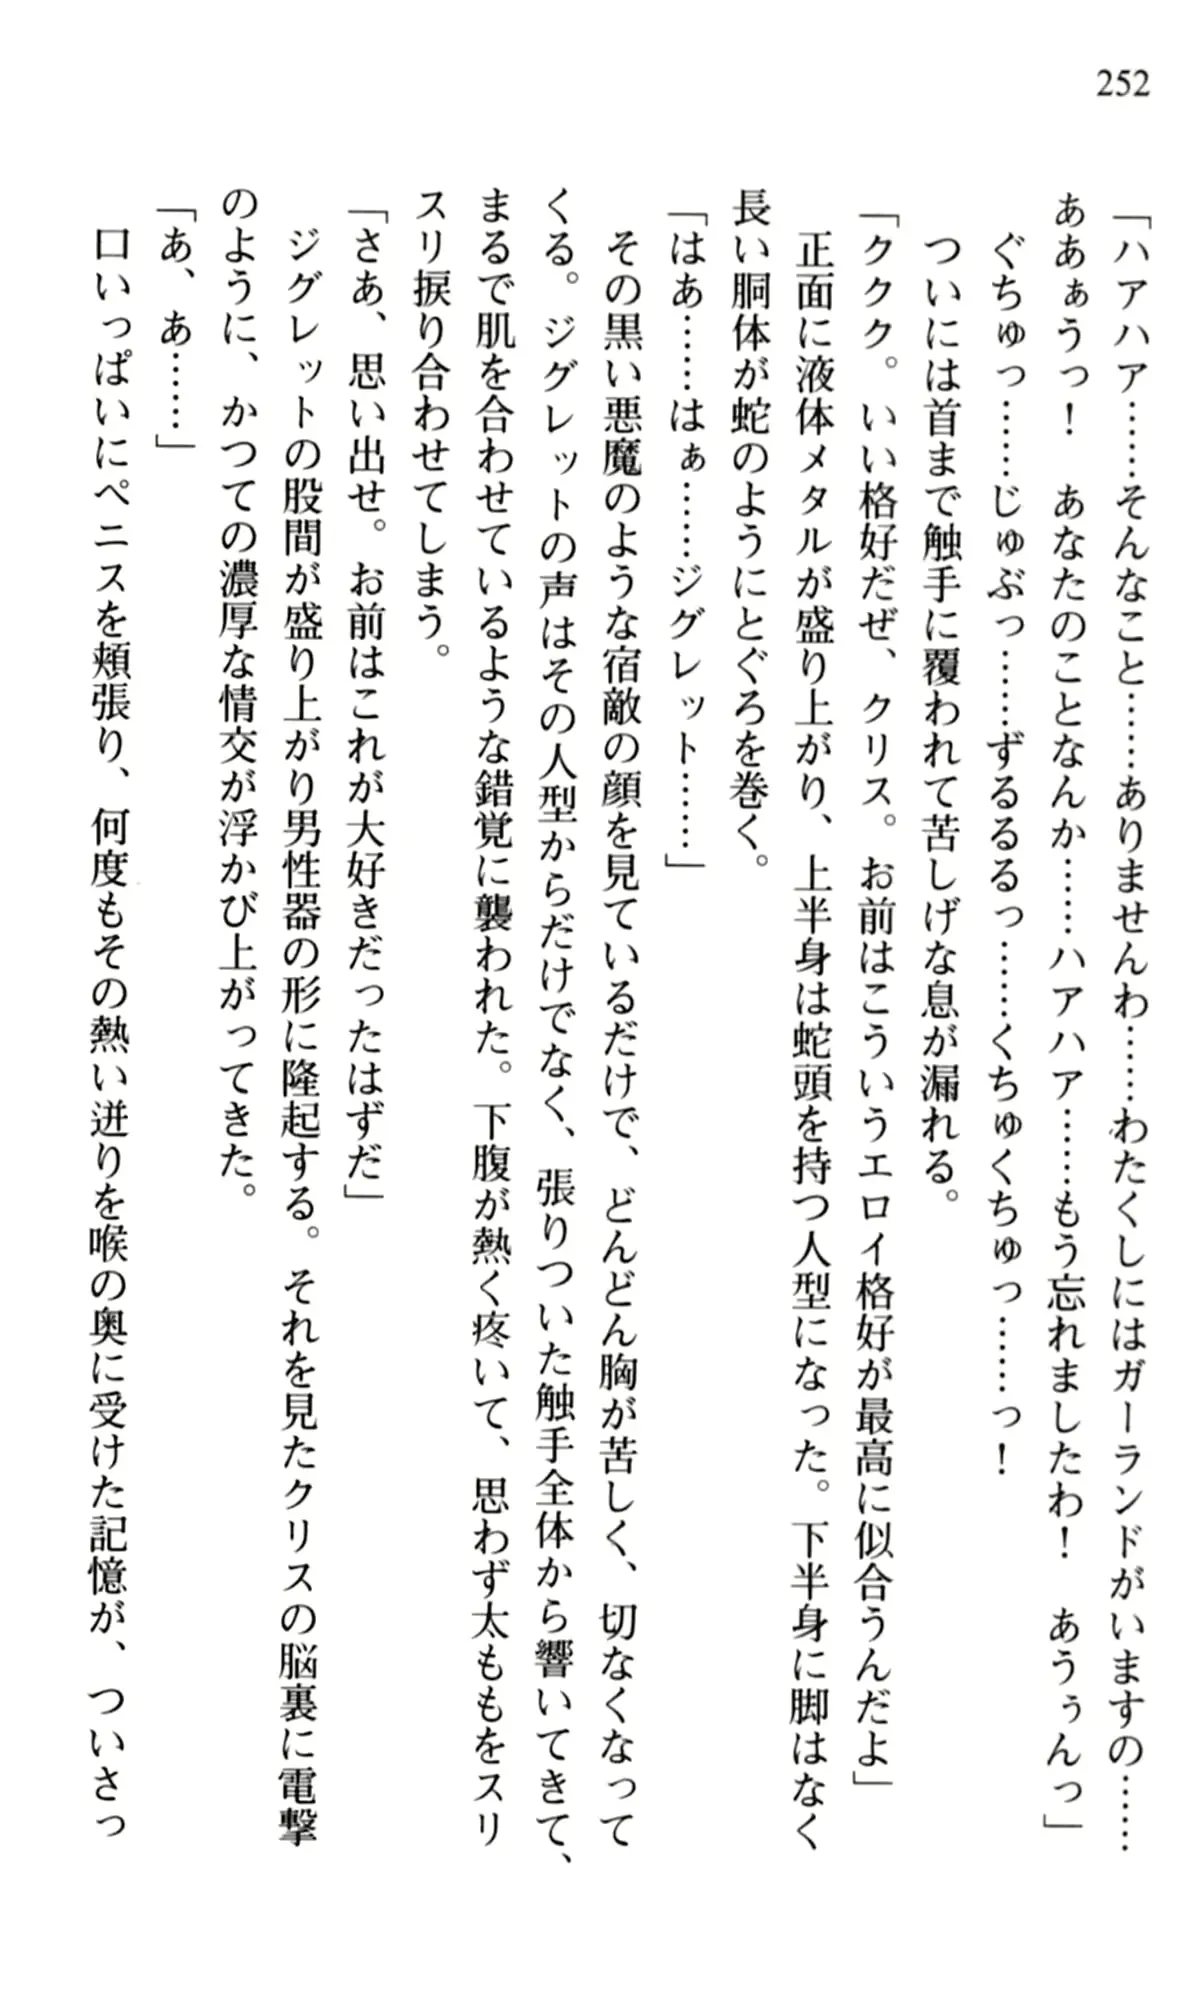 252
「ハアハア……そんなこと……ありませんわ……わたくしにはガーランドがいますの……
ああぁうっ！　あなたのことなんか……ハアハア……もう忘れましたわ！　あうぅんっ」
ぐちゅっ……じゅぶっ……ずるるるっ……くちゅくちゅっ……っ！
ついには首まで触手に覆われて苦しげな息が漏れる。
「ククク。いい格好だぜ、クリス。お前はこういうエロイ格好が最高に似合うんだよ」
正面に液体メタルが盛り上がり、上半身は蛇頭を持つ人型になった。下半身に脚はなく
長い胴体が蛇のようにとぐろを巻く。
「はあ……はぁ……ジグレット……」
その黒い悪魔のような宿敵の顔を見ているだけで、どんどん胸が苦しく、切なくなって
くる。ジグレットの声はその人型からだけでなく、張りついた触手全体から響いてきて、
まるで肌を合わせているような錯覚に襲われた。下腹が熱く疼いて、思わず太ももをスリ
スリ捩り合わせてしまう。
「さあ、思い出せ。お前はこれが大好きだったはずだ」
ジグレットの股間が盛り上がり男性器の形に隆起する。それを見たクリスの脳裏に電撃
のように、かつての濃厚な情交が浮かび上がってきた。
「あ、あ……」
口いっぱいにペニスを頬張り、何度もその熱い迸りを喉の奥に受けた記憶が、ついさっ